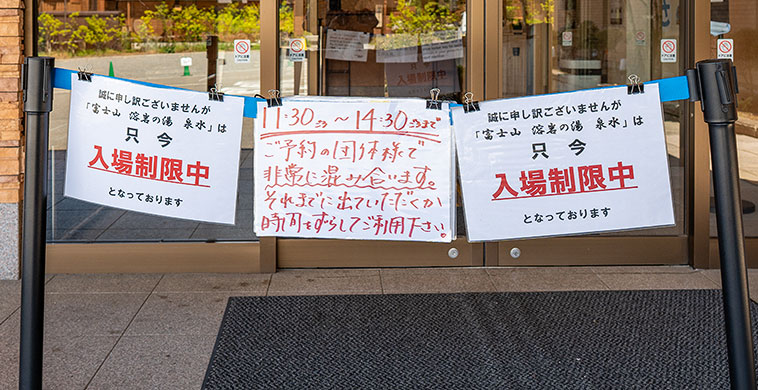 誠に申し訳ございませんが
「富士山 溶岩の湯 泉水」は
只今
入場制限中
となっております
11:30ごろ～14:30ごろまで
ご予約の団体様で
非常に混み合います。
それまでに出ていただくか
時間をずらしてご利用下さい。
誠に申し訳ございませんが
「富士山 溶岩の湯 泉水」は
只今
入場制限中
となっております